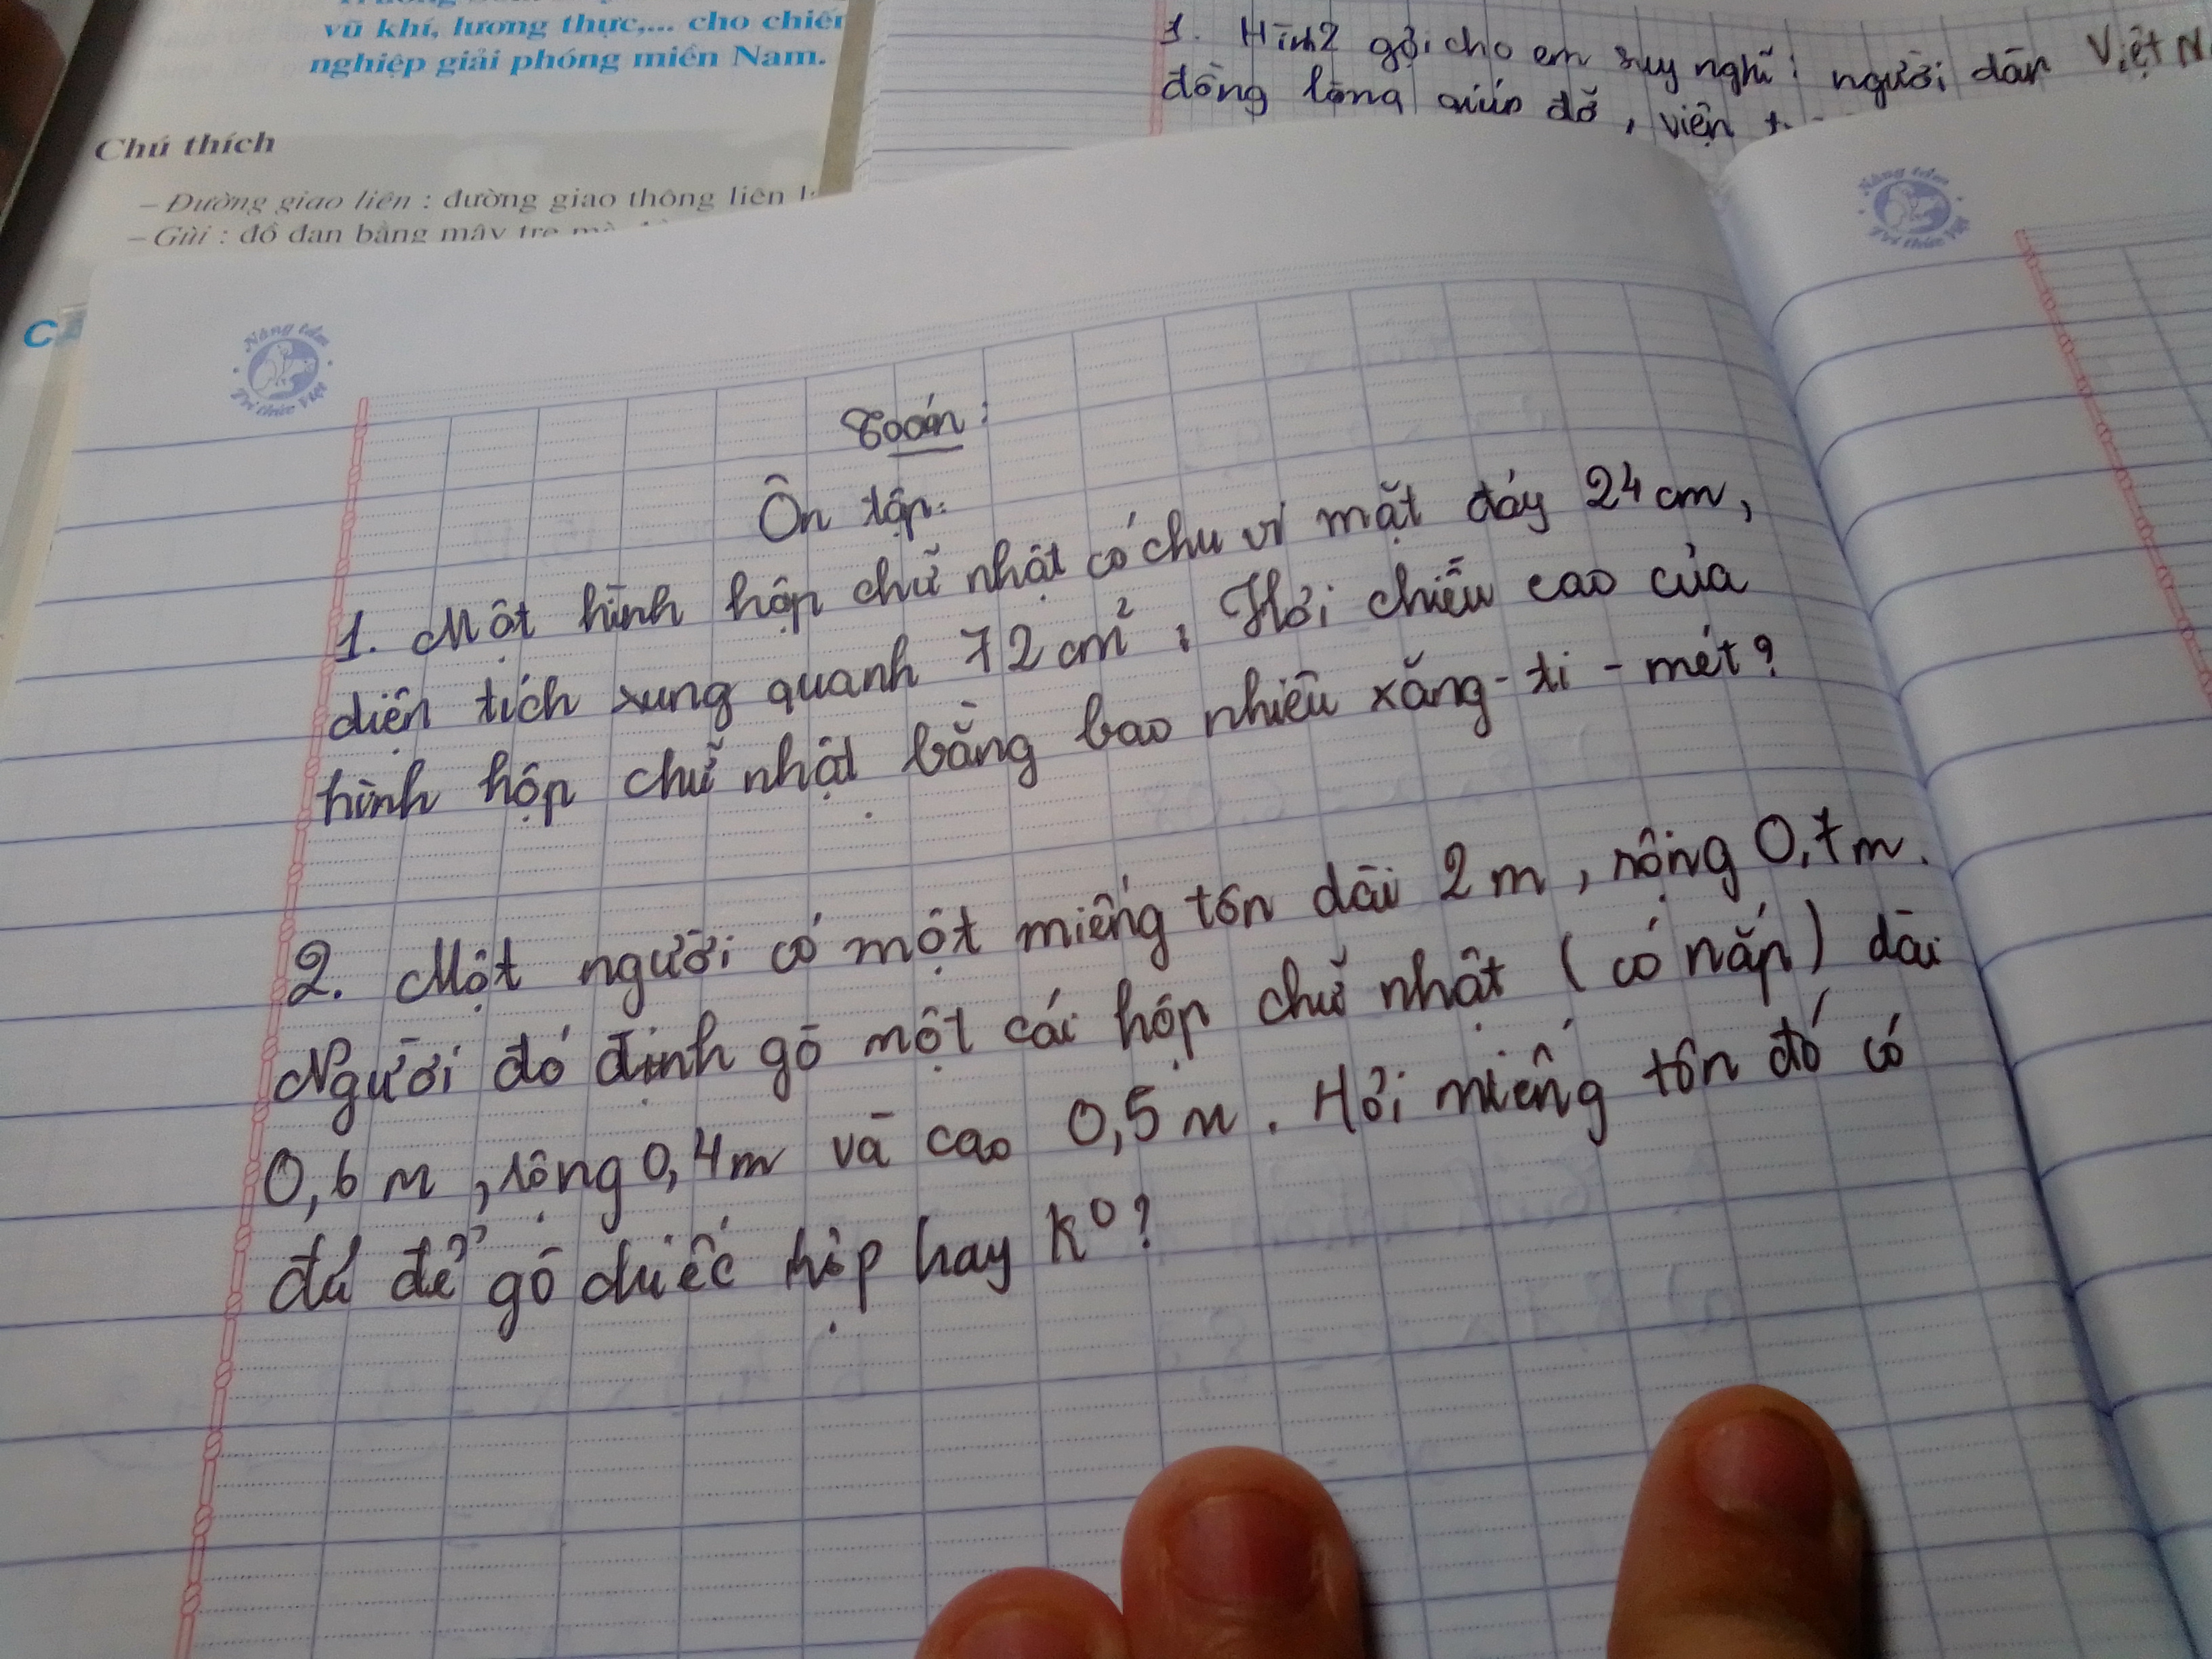 vũ khí, lương thực,... cho chiến
nghiệp giải phóng miền Nam.
Chú thích
– Đường giao liên : đường giao thông liên
– Gùi : đồ đan bằng mây tre
1. Hình 2 gợi cho em suy nghĩ : người dân Việt N
đồng lòng giúp đỡ, viện
Nâng tầm
Tri thức Việt
Nâng tầm
Tri thức Việt
Toán:
Ôn tập:
1. Một hình hộp chữ nhật có chu vi mặt đáy 24 cm,
diện tích xung quanh 72 cm². Hỏi chiều cao của
hình hộp chữ nhật bằng bao nhiêu xăng-ti-mét?
2. Một người có một miếng tôn dài 2 m, rộng 0,7 m.
Người đó định gò một cái hộp chữ nhật (có nắp) dài
0,6 m, rộng 0,4 m và cao 0,5 m. Hỏi miếng tôn đó có
đủ để gò chiếc hộp hay k⁰?